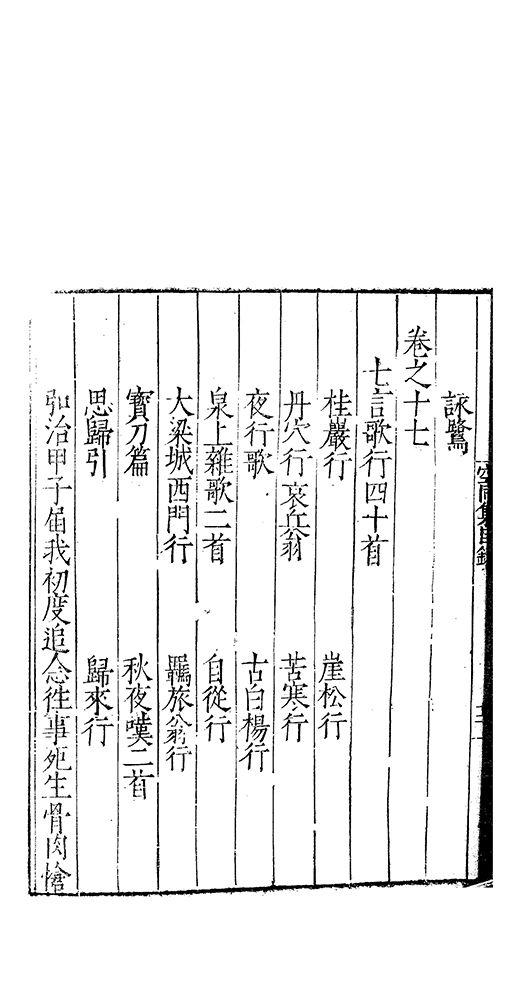 詠鷺
卷之十七
七言歌行四十首
桂巖行 崖松行
丹穴行哀丘翁 苦寒行
夜行歌 古白楊行
泉上雜歌二首 自從行
大梁城西門行 羈旅翁行
寶刀篇 秋夜嘆二首
思歸引 歸來行
弘治甲子届我初度追念徃事死生骨肉愴